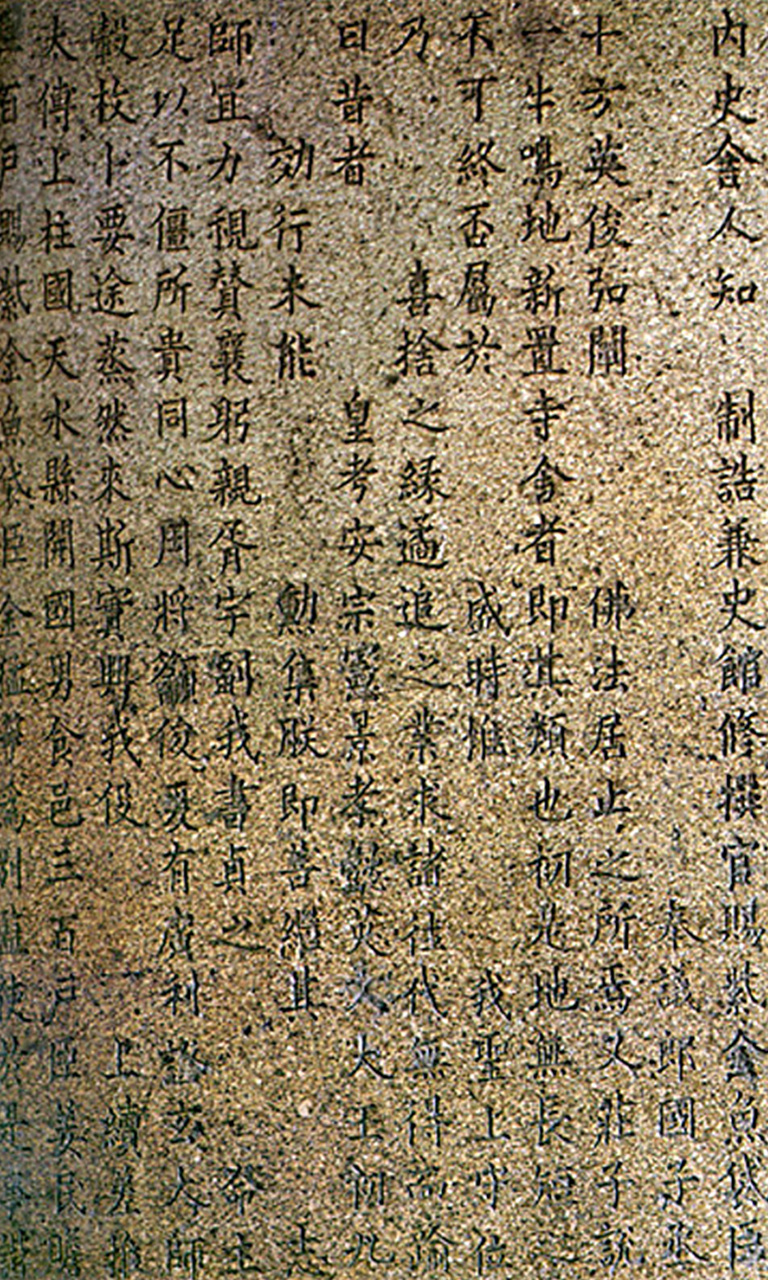 內史舍人知 制誥兼史館修撰官賜紫金魚袋臣
奉議郎國子丞
十方英俊弘闡 佛法居止之所焉又莊子說
一牛鳴地新置寺舍者即其類也初是地無長短之
不可終否屬於 盛時惟 我聖上守位
乃 喜捨之緣遹追之業求諸往代無得而踰
曰昔者 皇考安宗憲景孝懿英文大王初九
効行未能 勲集朕即善繼其 志
師宜力視贊襄躬親胥宇副我書貞之 命至
足以不僵所貴同心周將籲俊爰有廣利證玄大師
毅枚卜要途蒸然來斯實興我役 上續差推
大傅上柱國天水縣開國男食邑三百戶臣姜民瞻
百戶賜紫金魚袋臣金猛等爲別監使